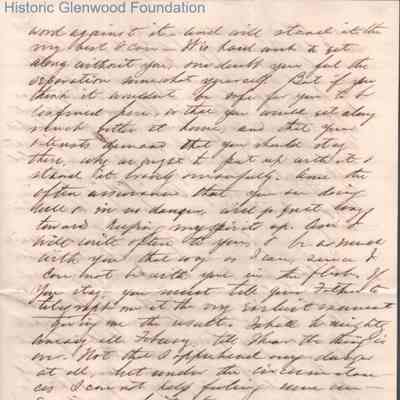 Historic Glenwood Foundation
word against it and will stand it the
very best I can – It is hard work to get
along without you, no doubt you feel the
separation somewhat yourself. But if you
think it wouldn't be safe for you to be
confined here, or that you would get along
much better at home, and that your
interests demand that you should stay
there, why we ought to put up with it &
stand it bravely
often assurance that you are doing
well & in no danger, will go great way
toward keeping my spirit up. And I
will write often to you, & be as much
with you that way as I can, since I
can not be with you in the flesh. If
you stay, you must tell your Father to
telegraph me at the very earliest moment
giving me the result. I shall be mighty
uneasy all till I hear the thing is
over. Not that I apprehend any danger
at all, but under the circumstan-
ces I can not help feeling some un-